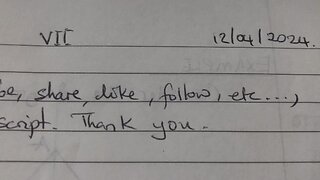 VII 12/04/2024.
be, share, like, follow, etc...,
script. Thank you.